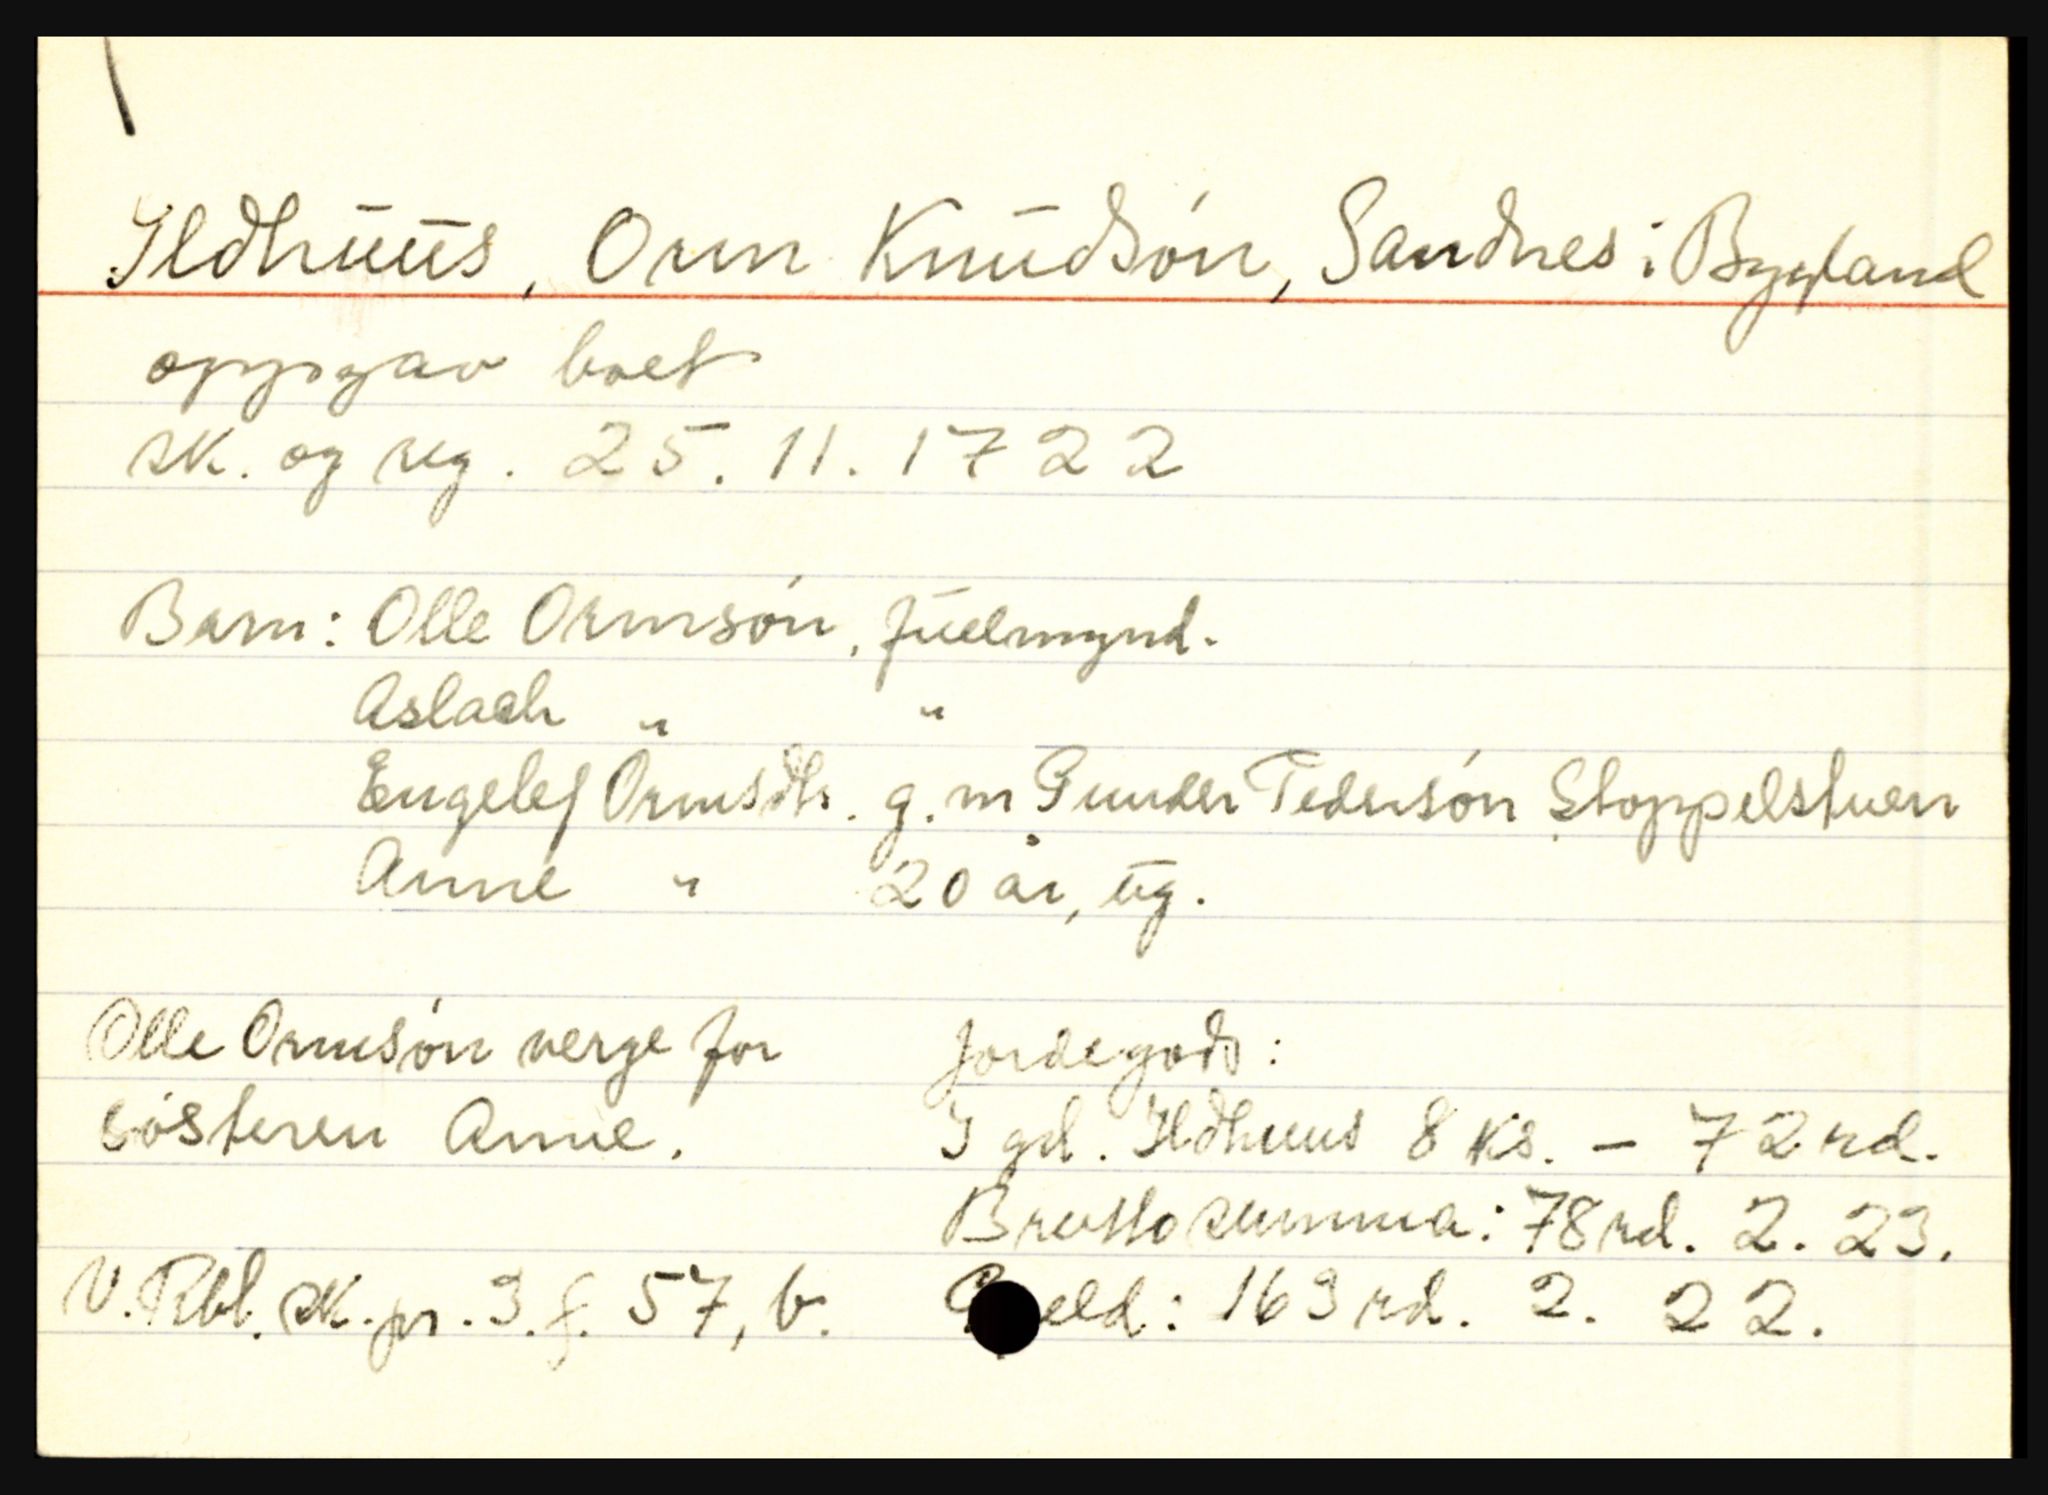 Ildhuus, Orm Knudsón, Sandnes i Bygland
oppgav boet
sk. og reg. 25. 11. 1722
Barn: Olle Ormsón, fuelmynd.
Aslach " "
Engelef Ormsdtr. g. m Gunder Pedersón Stoppelstuen
Anne " 20 år, ug.
Olle Ormsón verge for
sósteren Anne.
Jordegods:
I grd. Ildhuus 8 ks. - 72 rd.
Bruttosumma: 78 rd. 2. 23.
Gjeld: 163 rd. 2. 22.
V. Rbl. sk. pr. 3. f. 57, b.